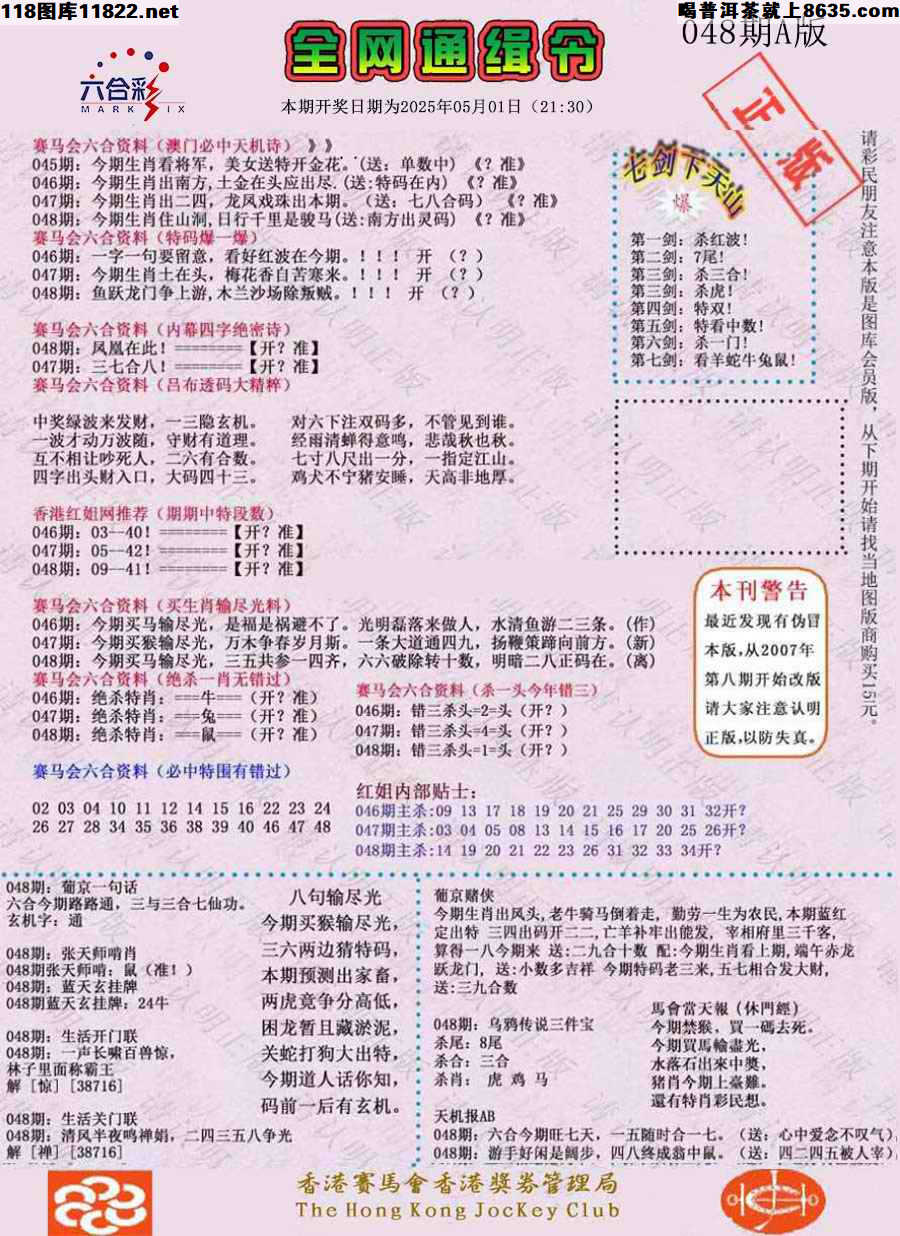 118图库11822.net
喝普洱茶就上8635.com
048期A版
全网通缉令
六合彩
MARK SIX
本期开奖日期为2025年05月01日（21:30）
正版
赛马会六合资料（澳门必中天机诗）》》
045期：今期生肖看将军，美女送特开金花.（送：单数中）《？准》
046期：今期生肖出南方,土金在头应出尽.(送:特码在内）《？准》
047期：今期生肖出二四，龙凤戏珠出本期。（送：七八合码）《？准》
048期：今期生肖住山洞,日行千里是骏马(送:南方出灵码）《？准》
赛马会六合资料（特码爆一爆）
046期：一字一句要留意，看好红波在今期。！！！ 开 （？）
047期：今期生肖土在头，梅花香自苦寒来。！！！ 开 （？）
048期：鱼跃龙门争上游,木兰沙场除叛贼。！！！ 开 （？）
赛马会六合资料（内幕四字绝密诗）
048期：凤凰在此！========【开？准】
047期：三七合八！========【开？准】
赛马会六合资料（吕布透码大精粹）
中奖绿波来发财，一三隐玄机。 对六下注双码多，不管见到谁。
一波才动万波随，守财有道理。 经雨清蝉得意鸣，悲哉秋也秋。
互不相让吵死人，二六有合数。 七寸八尺出一分，一指定江山。
四字出头财入口，大码四十三。 鸡犬不宁猪安睡，天高非地厚。
香港红姐网推荐（期期中特段数）
046期：03--40！========【开？准】
047期：05--42！========【开？准】
048期：09--41！========【开？准】
赛马会六合资料（买生肖输尽光料）
046期：今期买马输尽光，是福是祸避不了。光明磊落来做人，水清鱼游二三条。(作)
047期：今期买猴输尽光，万木争春岁月斯。一条大道通四九，扬鞭策蹄向前方。(新)
048期：今期买马输尽光，三五共参一四齐，六六破除转十数，明暗二八正码在。(离)
赛马会六合资料（绝杀一肖无错过）
046期：绝杀特肖：===牛===（开？准）
047期：绝杀特肖：===兔===（开？准）
048期：绝杀特肖：===鼠===（开？准）
赛马会六合资料（杀一头今年错三）
046期：错三杀头=2=头（开？）
047期：错三杀头=4=头（开？）
048期：错三杀头=1=头（开？）
赛马会六合资料（必中特围有错过）
02 03 04 10 11 12 14 15 16 22 23 24
26 27 28 34 35 36 38 39 40 46 47 48
红姐内部贴士：
046期主杀:09 13 17 18 19 20 21 25 29 30 31 32开？
047期主杀:03 04 05 08 13 14 15 16 17 20 25 26开？
048期主杀:14 19 20 21 22 23 26 31 32 33 34开？
七剑下天山
爆
第一剑：杀红波！
第二剑：7尾！
第三剑：杀三合！
第三剑：杀虎！
第四剑：特双！
第五剑：特看中数！
第六剑：杀一门！
第七剑：看羊蛇牛兔鼠！
请彩民朋友注意本版是图库会员版，从下期开始请找当地图版商购买15元。
本刊警告
最近发现有伪冒
本版,从2007年
第八期开始改版
请大家注意认明
正版,以防失真。
048期：葡京一句话
六合今期路路通，三与三合七仙功。
玄机字：通
048期：张天师啃肖
048期张天师啃：鼠（准！）
048期：蓝天玄挂牌
048期蓝天玄挂牌：24牛
048期：生活开门联
048期：一声长啸百兽惊，
林子里面称霸王
解［惊］[38716]
048期：生活关门联
048期：清风半夜鸣禅娟，二四三五八争光
解［禅］[38716]
八句输尽光
今期买猴输尽光，
三六两边猜特码，
本期预测出家畜，
两虎竟争分高低，
困龙暂且藏淤泥，
关蛇打狗大出特，
今期道人话你知，
码前一后有玄机。
葡京赌侠
今期生肖出风头,老牛骑马倒着走, 勤劳一生为农民,本期蓝红
定出特 三四出码开二二,亡羊补牢出能发, 宰相府里三千客,
算得一八今期来 送:二九合十数 配:今期生肖看上期,端午赤龙
跃龙门, 送:小数多吉祥 今期特码老三来,五七相合发大财,
送:三九合数
048期：乌鸦传说三件宝
杀尾：8尾
杀合：三合
杀肖： 虎 鸡 马
馬會當天報（休門經）
今期禁猴，買一碼去死。
今期買馬輸盡光，
水落石出來中奬，
猪肖今期上臺難。
還有特肖彩民想。
天机报AB
048期：六合今期旺七天，一五随时合一七。（送：心中爱念不叹气）
048期：游手好闲是阔步，四八终成翁中鼠。（送：四二四五被人宰）
香港賽馬會香港獎券管理局
The Hong Kong JocKey Club